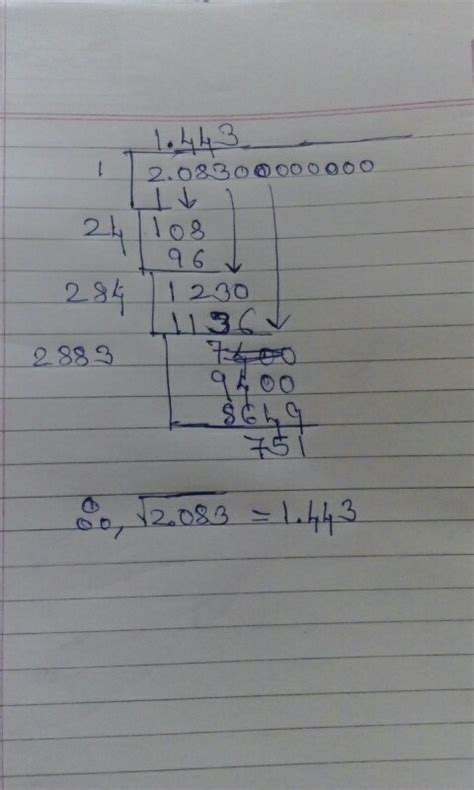 1.443
1 2.08300000000
1
24 108
96
284 1230
1136
2883 7400
9400
8649
751
∴, √2.083 = 1.443